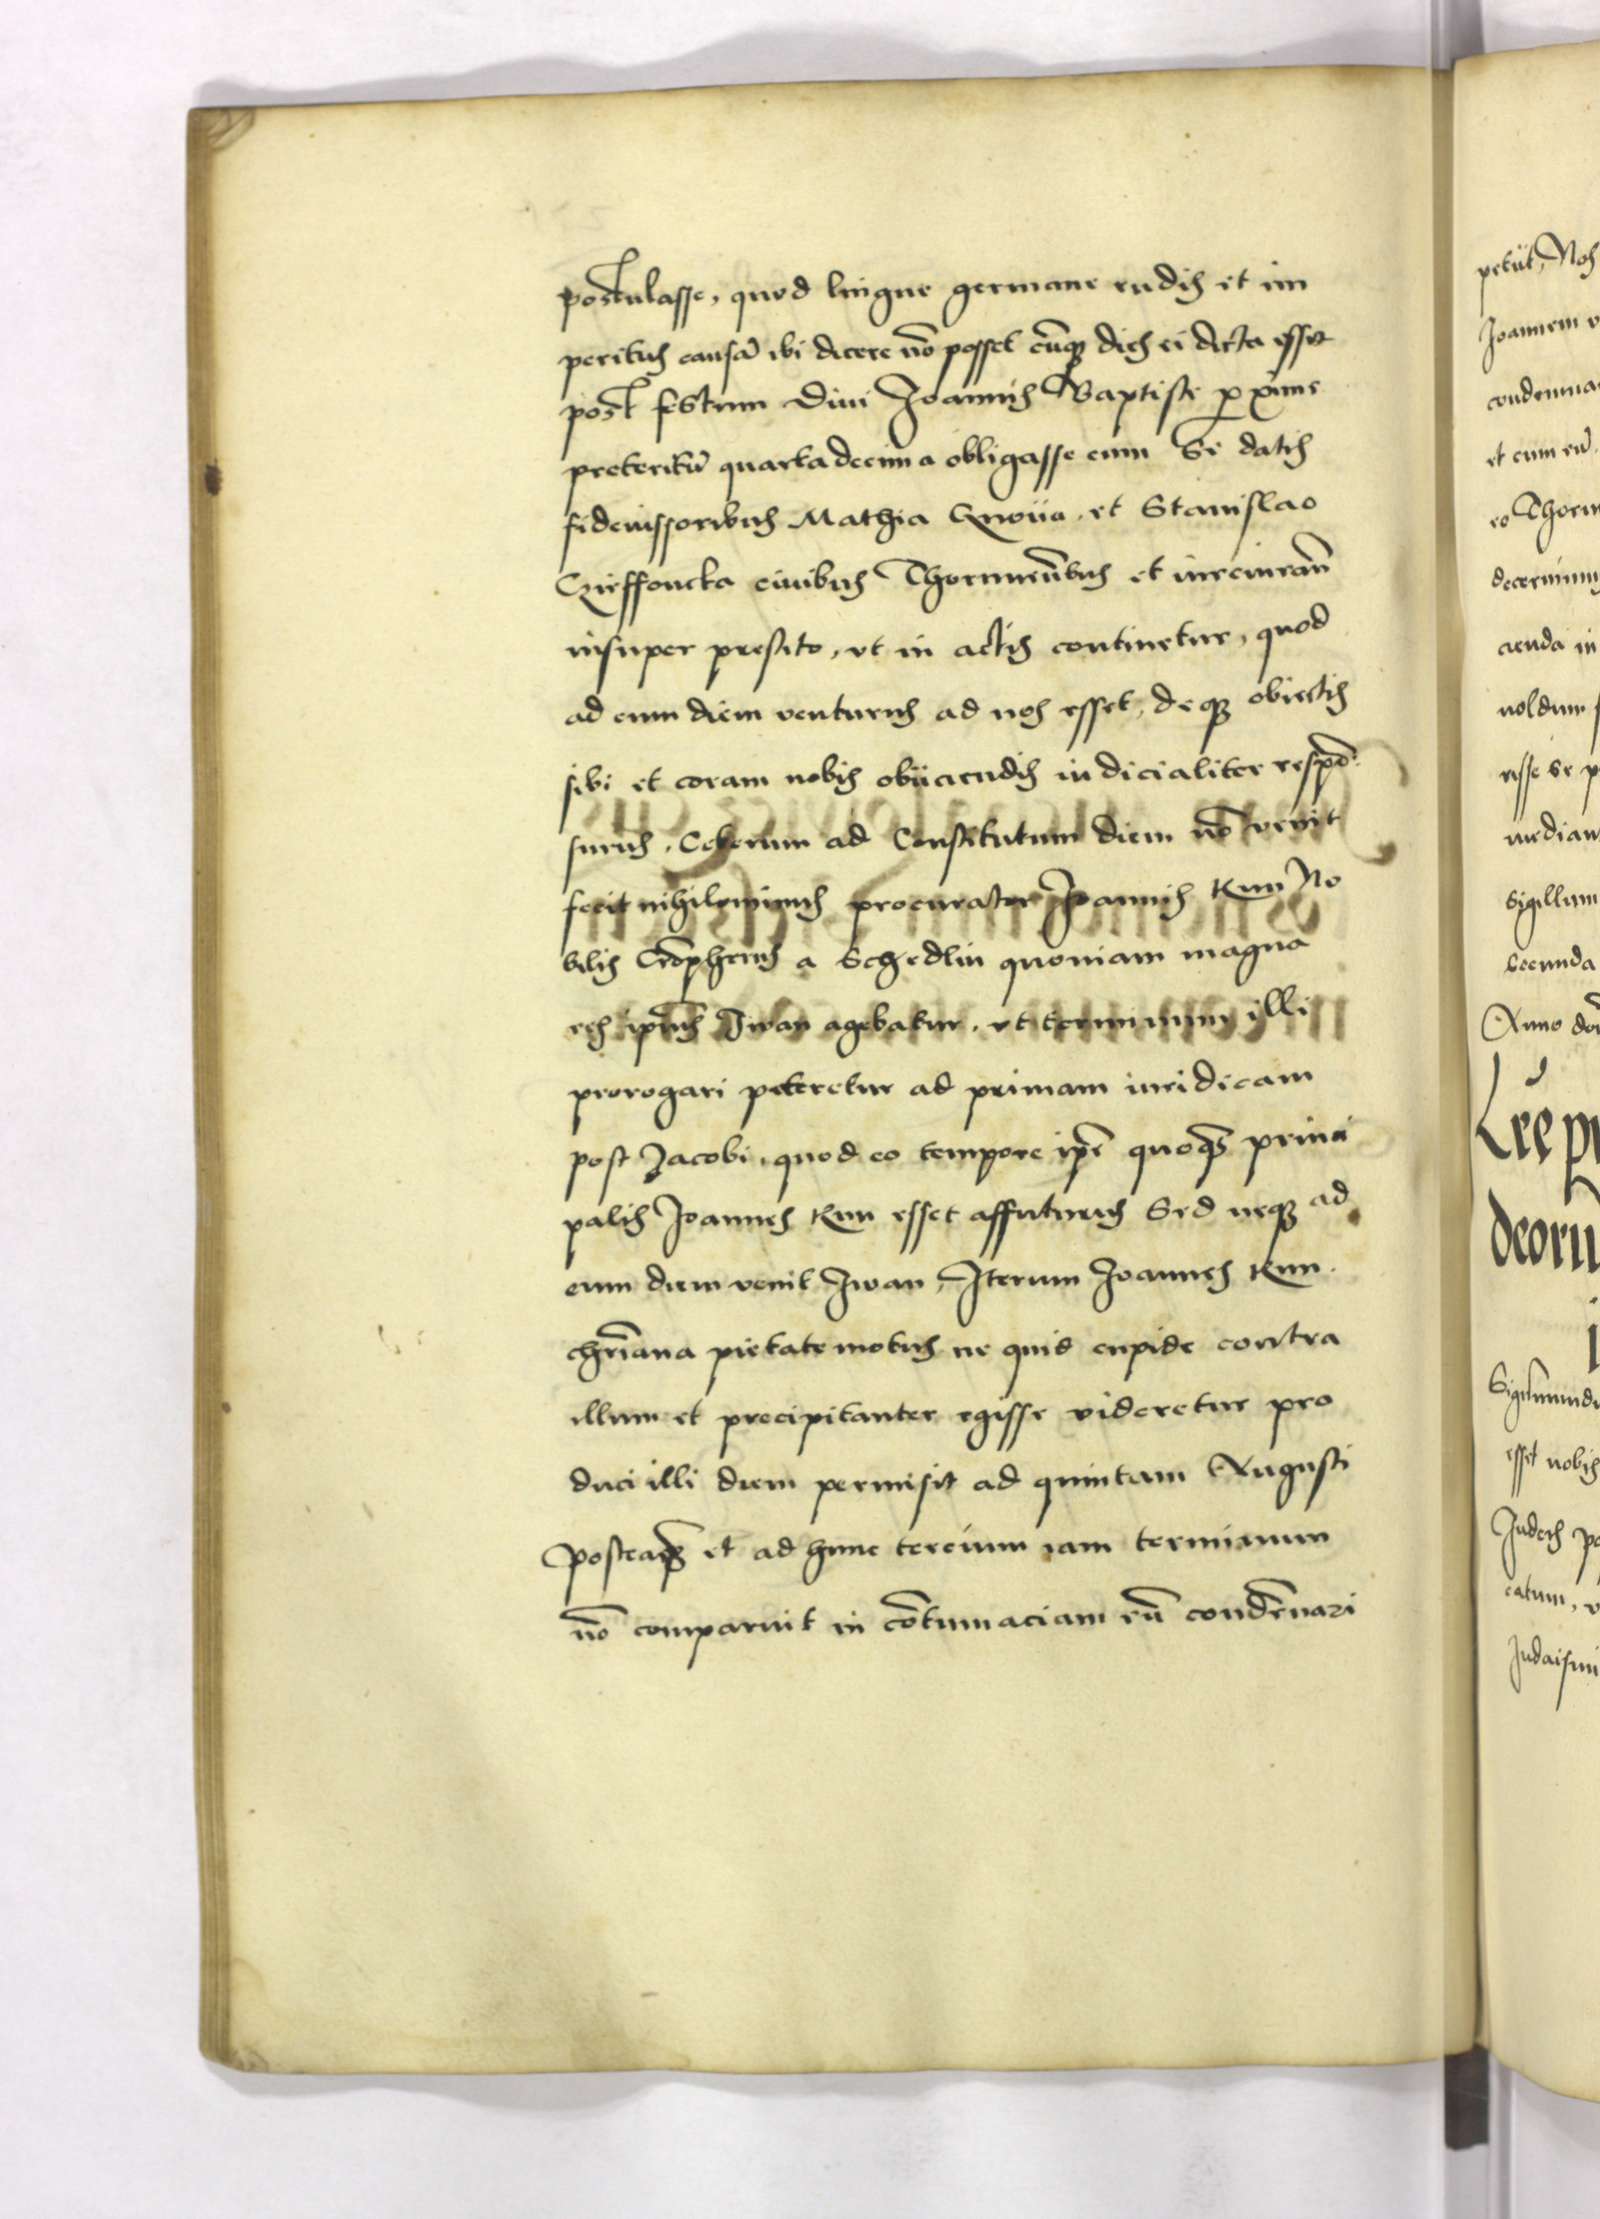 postulasse, quod lingue germane rudis et im
peritus causā ibi dicere nō posset cūq3 dies ei dicta esset
post festum Diui Joannis Baptiste proxime
preteritū quarta decima obligasse eum Se datis
fideiussoribus Mathia et Stanislao
ciuibus Thorunēn̄bus et
insuper presito, vt in actis continetur, quod
ad eum diem venturus ad nos esset, deq3 obiectis
sibi et coram nobis obiiciendis iudicialiter respō
surus. Ceterum ad Constitutum diem nō venit
fecit nihilominus procurator Joannis Kun No
bilis a Schedlin quoniam magna
res ip̄ius Iwan agebatur, vt terminum illi
prorogari peteretur ad primam iuridicam
post Jacobi, quod eo tempore ip̄e quoq3 princi
palis Joannes Kun esset affuturus Sed neq3 ad
eum diem venit Iwan, Iterum Joannes Kun
chr̄iana pietate motus ne quid cupide contra
illum et precipitanter egisse videretur pro
duci illi diem permisit ad quintam Augusti
Posteaq3 et ad hunc tercium iam terminum
nō comparuit in cōtumaciam eū condēnari
petiit, Nos
Joannem
et cum eū
eo
uoldum
sigillum
secunda
Anno
Lr̄e
deorū
esset nobis
catum,